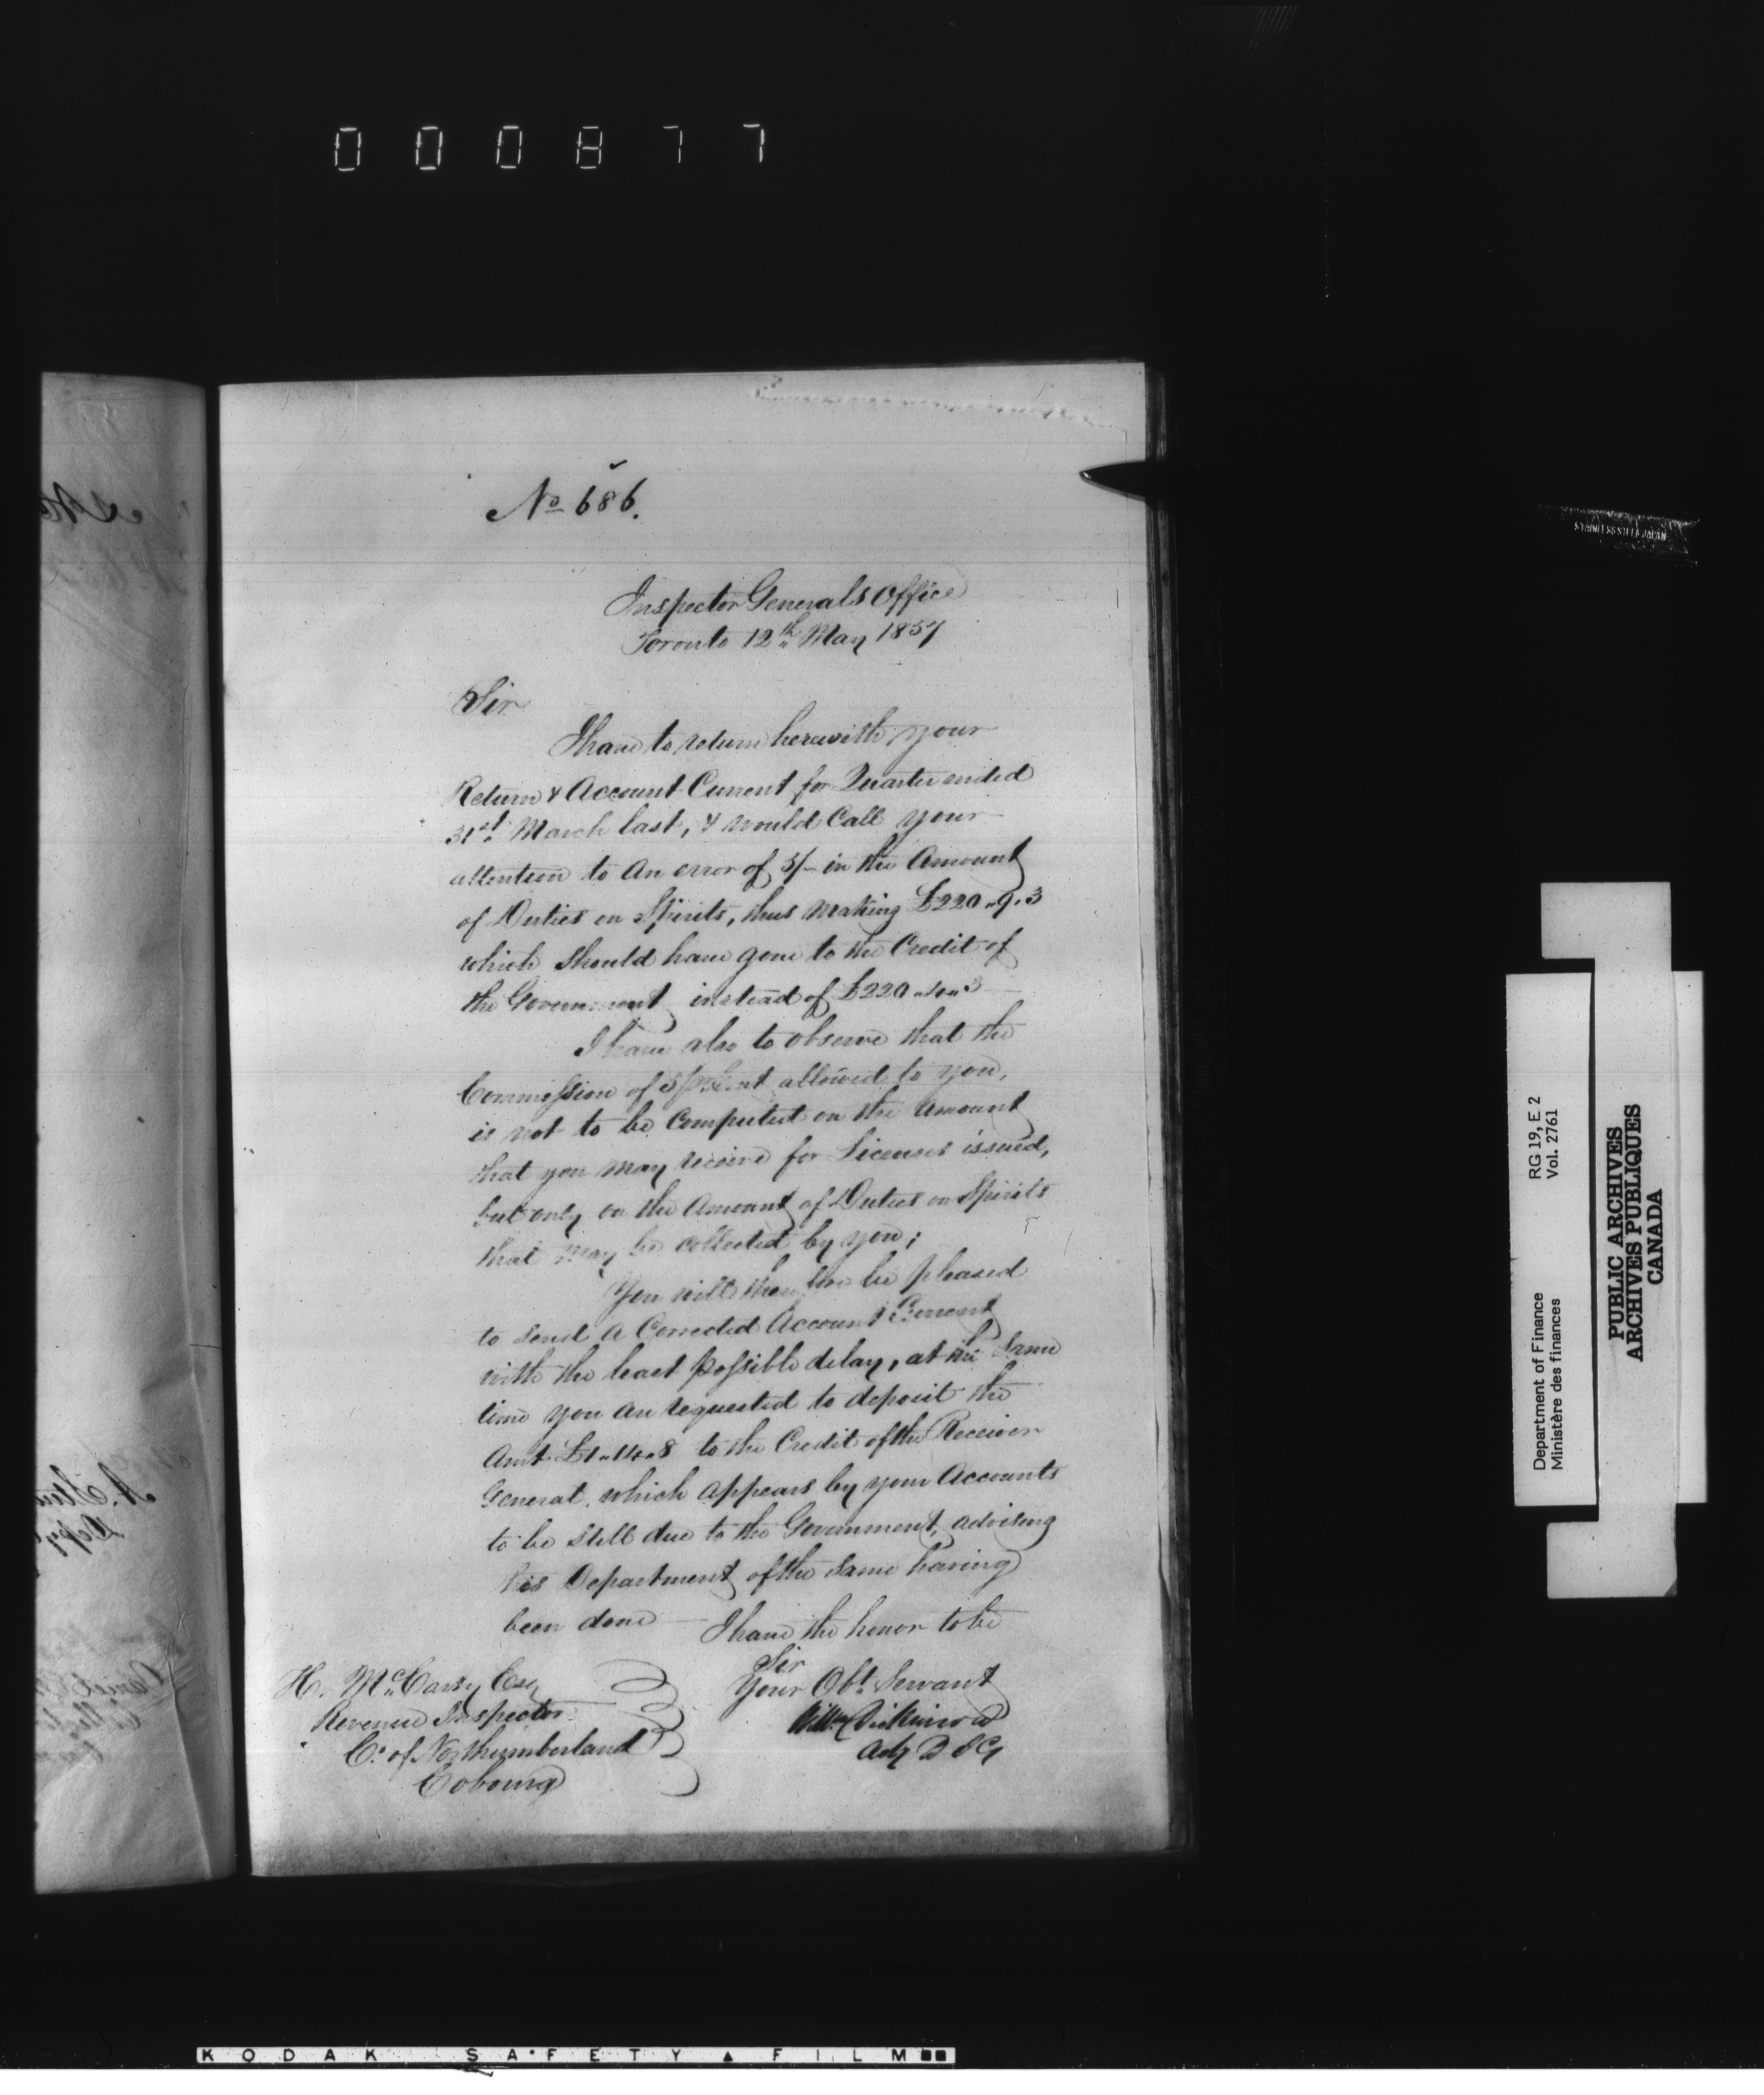 000877
No 686.
Inspector Generals Office
Toronto 12th May 1857
Sir
I have to return herewith your
Return & Account Current for Quarter ended
31st March last, & would Call your
attention to an error of 5/- in the Amount
of Duties on Spirits, thus making £220"9"3
which should have gone to the Credit of
the Government instead of £220"4"3
I have also to observe that the
Commission of 5 pr Cent allowed to you,
is not to be Computed on the Amount
that you may receive for Licenses issued,
but only on the Amount of Duties on Spirits
that may be collected by you;
You will therefore be pleased
to send a Corrected Account Current
with the least possible delay, at the same
time you are requested to deposit the
Amt £1"14"8 to the Credit of the Receiver
General, which appears by your Accounts
to be still due to the Government, advising
this Department of the same having
been done
I have the honor to be
Sir
Your Obt Servant
Willm Dickinson
Actg D I G
H. McCarty Esq
Revenue Inspector
Co of Northumberland
Cobourg
STAINLESS STEEL JAPAN
Department of Finance RG 19, E 2
Ministère des finances Vol. 2761
PUBLIC ARCHIVES
ARCHIVES PUBLIQUES
CANADA
KODAK SAFETY FILM